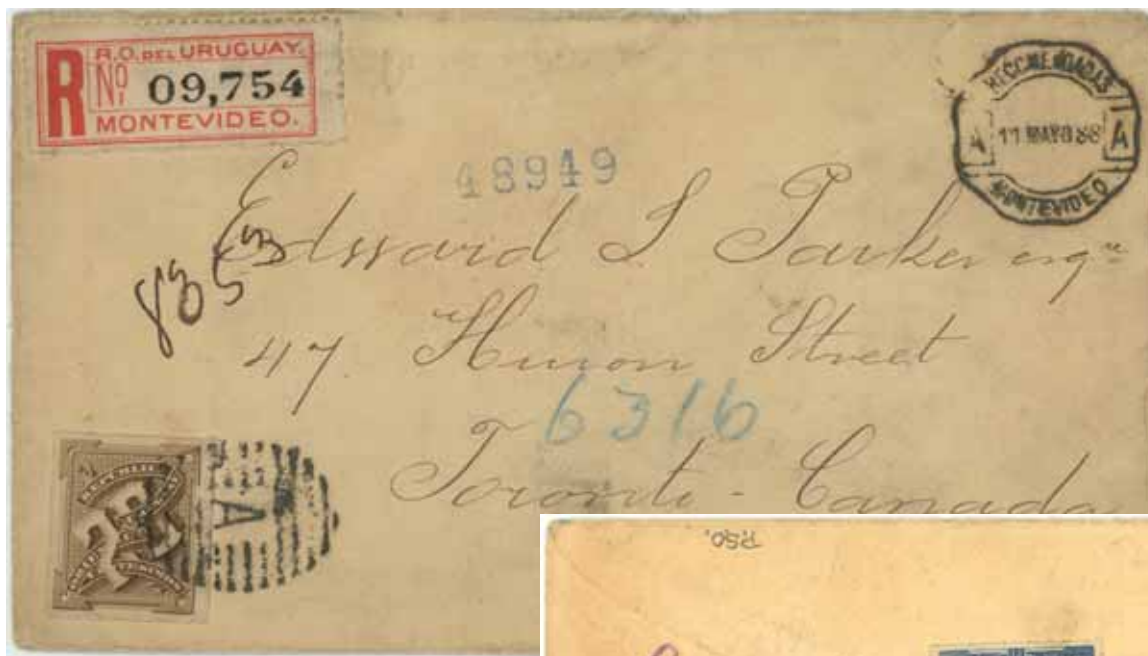 R
R.O. DEL URUGUAY.
No. 09,754
MONTEVIDEO.
RECOMENDADAS
A 11 MAYO 88 A
MONTEVIDEO
48949
Edward L Parker esqre
47 Huron Street
6316
Toronto - Canada
REPUBLICA
A
R.SO.